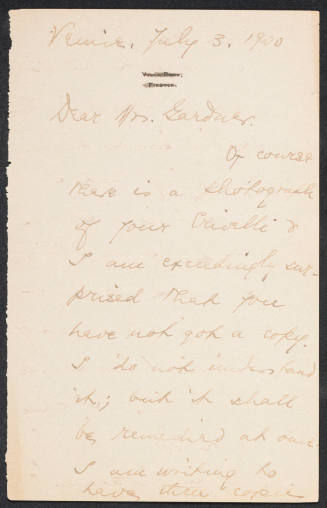 Venice, July 3. 1900
Dear Mrs. Gardner.
Of course
there is a photograph
of your Crivelli &
I am exceedingly sur-
prised that you
have not got a copy.
I do not understand
it; but it shall
be remedied at once.
I am writing to
have three copies